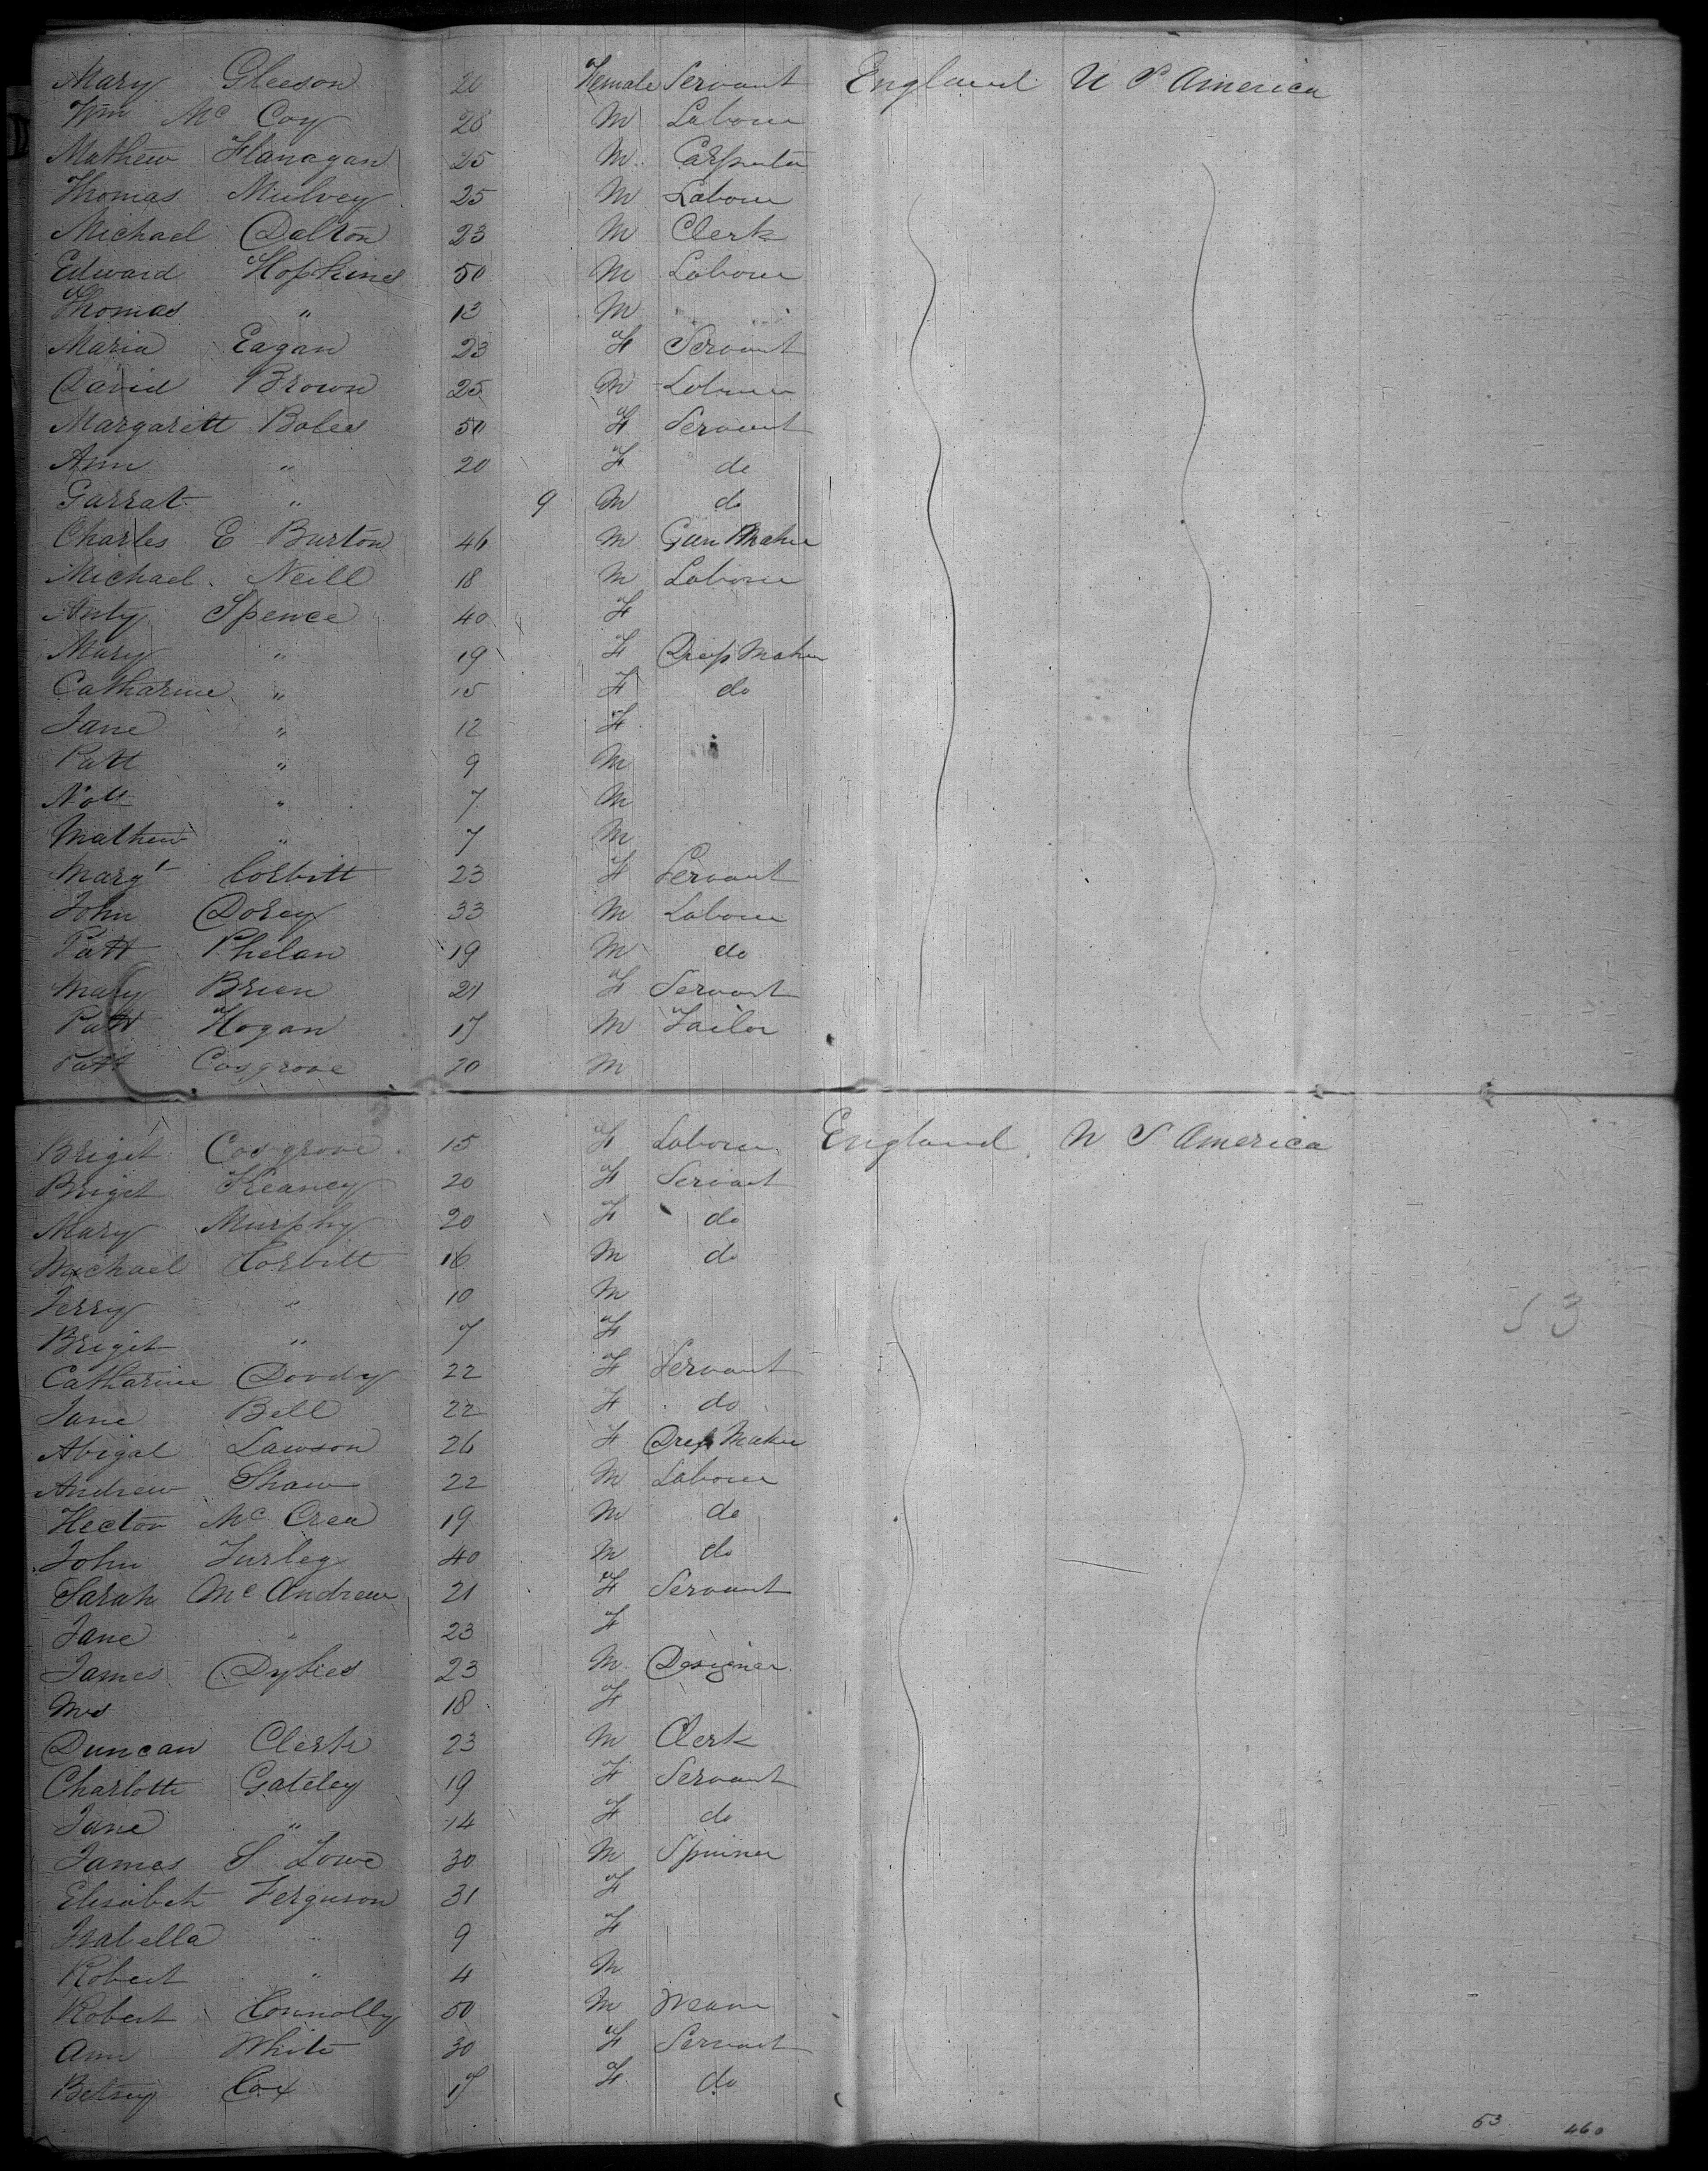 Mary Gleeson 20 Female Servant England U S America
Wm Mc Coy 28 M Labourer
Mathew Flanagan 25 M Carpenter
Thomas Mulvey 25 M Labourer
Michael Dalton 23 M Clerk
Edward Hopkins 50 M Labourer
Thomas " 13 M
Maria Eagan 23 F Servant
David Brown 25 M Labourer
Margarett Boles 50 F Servant
Ann " 20 F do
Garrat " 9 M do
Charles E Burton 46 M Gun Maker
Michael Neill 18 M Labourer
Anty Spence 40 F
Mary " 19 F Dress Maker
Catharine " 15 F do
Jane " 12 F
Patt " 9 M
" 7 M
Mathew " 7 M
Margt Corbitt 23 F Servant
John Dorey 33 M Labourer
Patt Phelan 19 M do
Mary Brien 21 F Servant
Patt Hogan 17 M Tailor
Patt Cosgrove 20 M
Briget Cosgrove 15 F Labourer England U S America
Briget Keaney 20 F Servant
Mary Murphy 20 F do
Michael Corbitt 16 M do
Jerry " 10 M
Briget " 7 F
53
Catharine Doody 22 F Servant
Jane Bell 22 F do
Abigal Lawson 26 F Dress Maker
Andrew Shaw 22 M Labourer
Hector Mc Crea 19 M do
John Turley 40 M do
Sarah Mc Andrew 21 F Servant
Jane " 23 F
James 23 M Designer
Mrs 18 F
Duncan Clerk 23 M Clerk
Charlotte Gateley 19 F Servant
Jane " 14 F do
James S Lowe 30 M Spinner
Elisabeth Ferguson 31 F
Isabella " 9 F
Robert " 4 M
Robert Connolly 50 M Weaver
Ann White 30 F Servant
Betsey Cox 17 F do
53 460